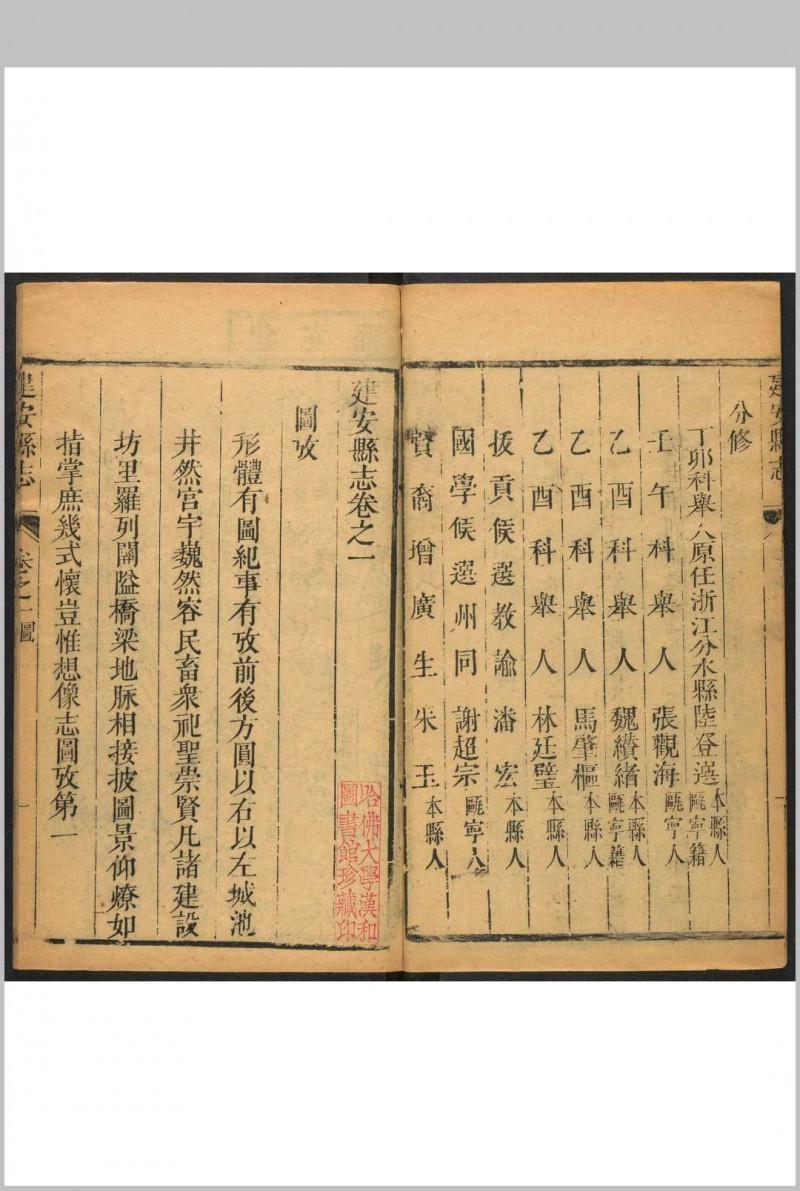 建安縣志
分修
丁卯科舉人原任浙江分水縣陸登選 本縣人 甌寧籍
壬午科舉人 張觀海 甌寧人
乙酉科舉人 魏纘緒 本縣人 甌寧籍
乙酉科舉人 馬肇樞 本縣人
乙酉科舉人 林廷璧 本縣人
拔貢候選教諭 潘宏 本縣人
國學候選州同 謝超宗 甌寧人
賢裔增廣生 朱玉 本縣人
建安縣志卷之一
哈佛大學漢和圖書館珍藏印
圖攷
形體有圖紀事有攷前後方圓以右以左城池
井然官宇巍然容民畜衆祀聖崇賢凡諸建設
坊里羅列關隘橋梁地脉相接披圖景仰燎如
指掌庶幾式懷豈惟想像志圖攷第一
建安縣志 卷之一 圖 一